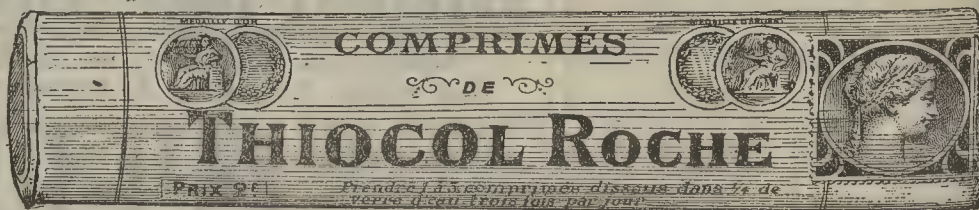 MEDAILLE D'OR
MEDAILLE D'ARGENT
COMPRIMÉS
DE
THIOCOL ROCHE
PRIX 2F
Prendre 1 à 3 comprimés dissous dans ¼ de
verre d'eau trois fois par jour